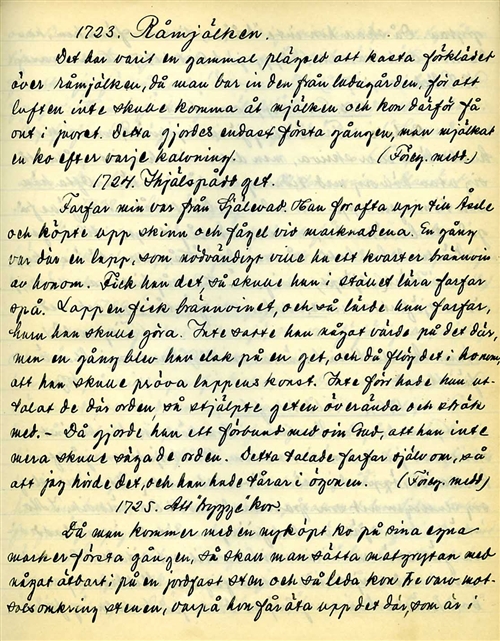 1723. Råmjölken.
Det har varit en gammal plägsed att kasta förklädet
över råmjölken, då man bar in den från ladugården, för att
luften inte skulle komma åt mjölken och kon därför få
ont i juvret. Detta gjordes endast första gången, man mjölkat
en ko efter varje kalvning. (Föreg. medd.)
1724. Ihjälspådd get.
Farfar min var från Själevad. Han for ofta upp till Åsele
och köpte upp skinn och fågel vid marknaderna. En gång
var där en lapp, som nödvändigt ville ha ett kvarter brännvin
av honom. Fick han det, så skulle han i stället lära farfar
spå. Lappen fick brännvinet, och så lärde han farfar,
huru han skulle göra. Inte satte han något värde på det där,
men en gång blev han elak på en get, och då flög det i honom,
att han skulle pröva lappens konst. Inte förr hade han ut-
talat de där orden så stjälpte geten överända och sträck
med. – Då gjorde han ett förbund med sin Gud, att han inte
mera skulle säga de orden. Detta talade farfar själv om, så
att jag hörde det, och han hade tårar i ögonen. (Föreg. medd)
1725. Att "bygge" kor.
Då man kommer med en nyköpt ko på sina egna
marker första gången, så skall man sätta matgrytan med
något ätbart i på en jordfast sten och så leda kon tre varv mot-
sols omkring stenen, varpå hon får äta upp det där, som är i